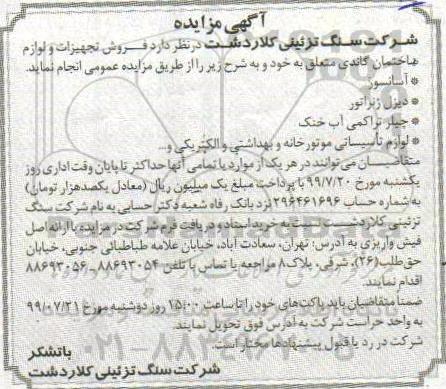 آگهی مزایده
شرکت سنگ تزئینی کلاردشت در نظر دارد فروش تجهیزات و لوازم
ساختمان گاندی متعلق به خود و به شرح زیر را از طریق مزایده عمومی انجام نماید.
* آسانسور
* دیزل ژنراتور
* چیلر تراکمی آب خنک
* لوازم تأسیساتی موتورخانه و بهداشتی و الکتریکی و...
متقاضیان می‌توانند در هر یک از موارد یا تمامی آنها حداکثر تا پایان وقت اداری روز
یکشنبه مورخ ۹۹/۷/۲۰ با پرداخت مبلغ یک میلیون ریال (معادل یکصدهزار تومان)
به شماره حساب ۲۹۶۴۶۱۶۹۶ نزد بانک رفاه شعبه دکتر حسابی به نام شرکت سنگ
تزئینی کلاردشت نسبت به خرید اسناد و دریافت فرم شرکت در مزایده با ارائه اصل
فیش واریزی به آدرس: تهران، سعادت آباد، خیابان علامه طباطبائی جنوبی، خیابان
حق طلب (۲۶)، شرقی، پلاک ۸ مراجعه یا تماس با تلفن ۸۸۶۹۳۰۵۴-۸۸۶۹۳۰۵۶
اقدام نمایند.
ضمناً متقاضیان باید پاکت‌های خود را تا ساعت ۱۵:۰۰ روز دوشنبه مورخ ۹۹/۰۷/۲۱
به واحد حراست شرکت به آدرس فوق تحویل نمایند.
شرکت در رد یا قبول پیشنهادها مختار است.
باتشکر
شرکت سنگ تزئینی کلاردشت
۰۲۱-۸۸۳۴۹۶۷۰-۵